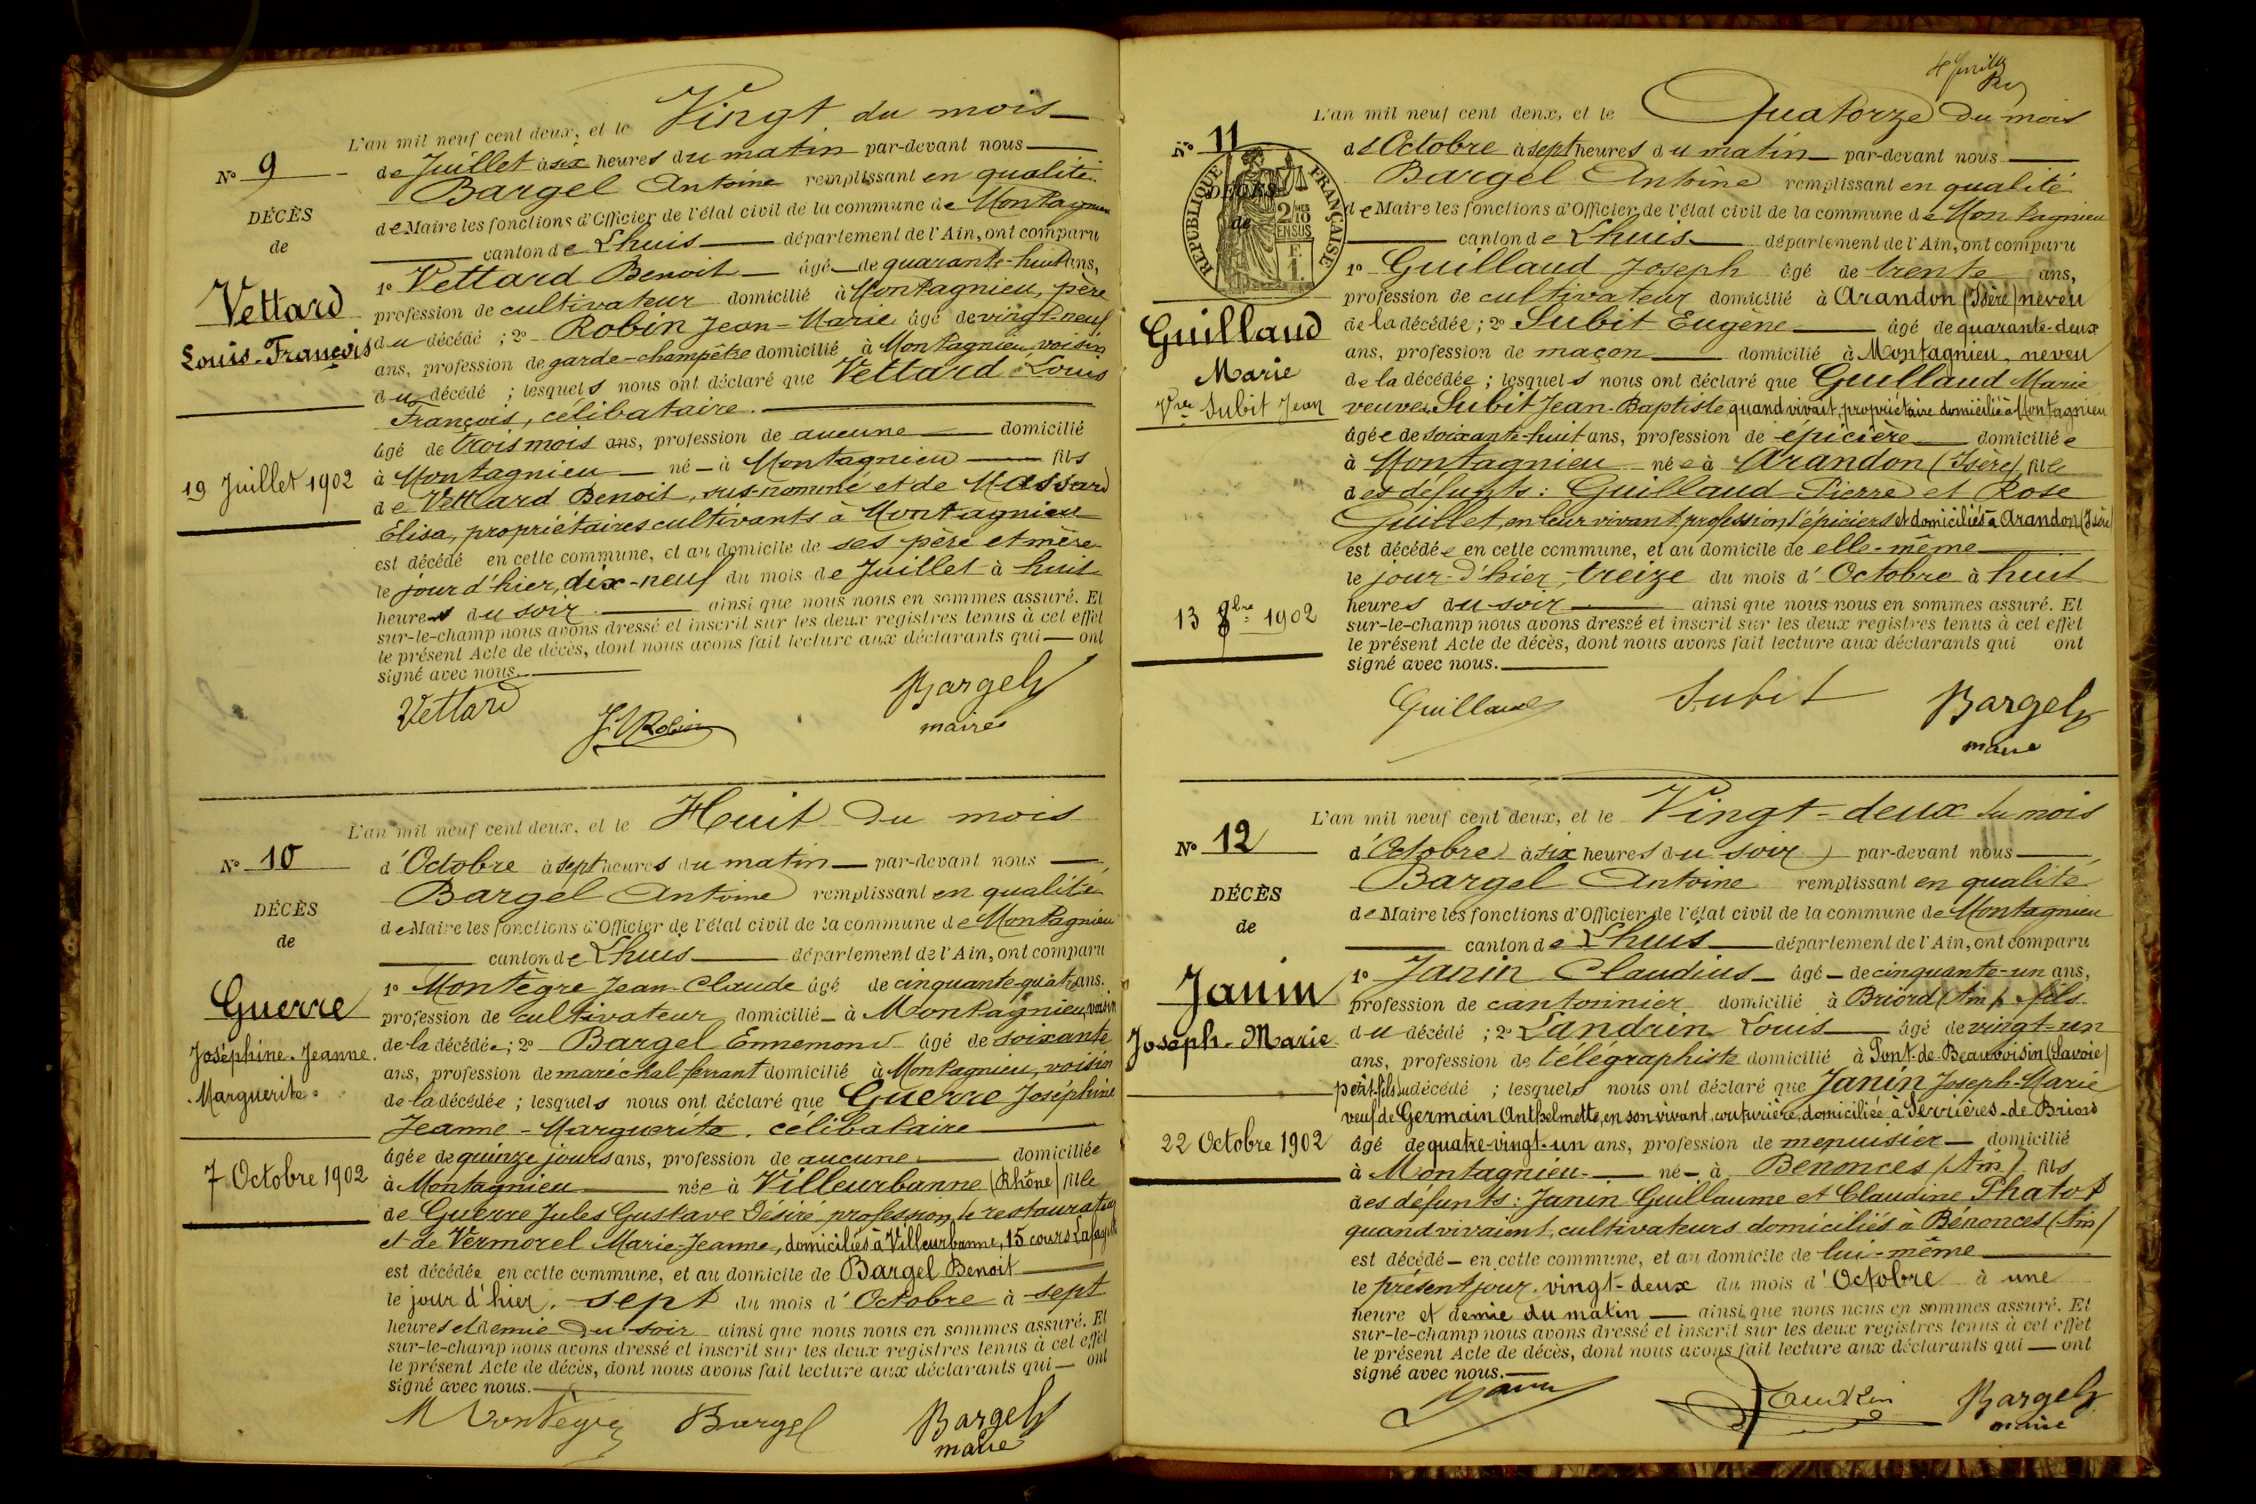 L'an mil neuf cent deux, et le Vingt du mois
N° 9
de Juillet à six heures du matin par-devant nous
Bargel Antoine remplissant en qualité
DÉCÈS
de Maire les fonctions d'Officier de l'état civil de la commune de Montagnieu
de
canton de Lhuis département de l'Ain, ont comparu
1° Vettard Benoit âgé de quarante-huit ans,
Vettard
profession de cultivateur domicilié à Montagnieu, père
Louis-François
du décédé ; 2° Robin Jean-Marie âgé de vingt-neuf
ans, profession de garde-champêtre domicilié à Montagnieu, voisin
du décédé ; lesquels nous ont déclaré que Vettard Louis
François, célibataire.
âgé de trois mois ans, profession de aucune domicilié
19 Juillet 1902
à Montagnieu né à Montagnieu fils
de Vettard Benoit, sus-nommé et de Massard
Elisa, propriétaires cultivants à Montagnieu
est décédé en cette commune, et au domicile de ses père et mère
le jour d'hier, dix-neuf du mois de Juillet à huit
heures du soir ainsi que nous nous en sommes assuré. Et
sur-le-champ nous avons dressé et inscrit sur les deux registres tenus à cet effet
le présent Acte de décès, dont nous avons fait lecture aux déclarants qui ont
signé avec nous.
Vettard J. Robin Bargel
maire
L'an mil neuf cent deux, et le Huit du mois
N° 10
d'Octobre à sept heures du matin par-devant nous
Bargel Antoine remplissant en qualité
DÉCÈS
de Maire les fonctions d'Officier de l'état civil de la commune de Montagnieu
de
canton de Lhuis département de l'Ain, ont comparu
1° Montègre Jean-Claude âgé de cinquante-quatre ans.
Guerre
profession de cultivateur domicilié à Montagnieu, voisin
Joséphine-Jeanne
de la décédée ; 2° Bargel Ennemond âgé de soixante
Marguerite
ans, profession de maréchal ferrant domicilié à Montagnieu, voisin
de la décédée ; lesquels nous ont déclaré que Guerre Joséphine
Jeanne-Marguerite, célibataire
âgée de quinze jours ans, profession de aucune domiciliée
7 Octobre 1902
à Montagnieu née à Villeurbanne (Rhône) fille
de Guerre Jules Gustave Désiré, profession de restaurateur
et de Vermorel Marie-Jeanne, domiciliés à Villeurbanne, 15 cours Lafayette
est décédée en cette commune, et au domicile de Bargel Benoit
le jour d'hier, sept du mois d'Octobre à sept
heures et demie du soir ainsi que nous nous en sommes assuré. Et
sur-le-champ nous avons dressé et inscrit sur les deux registres tenus à cet effet
le présent Acte de décès, dont nous avons fait lecture aux déclarants qui ont
signé avec nous.
Montègre Bargel Bargel
maire
L'an mil neuf cent deux, et le Quatorze du mois
N° 11
d'Octobre à sept heures du matin par-devant nous
RÉPUBLIQUE FRANÇAISE
2/10 EN SUS
F. 1.
Bargel Antoine remplissant en qualité
DÉCÈS
de Maire les fonctions d'Officier de l'état civil de la commune de Montagnieu
de
canton de Lhuis département de l'Ain, ont comparu
1° Guillaud Joseph âgé de trente ans,
profession de cultivateur domicilié à Arandon (Isère) neveu
Guillaud
de la décédée ; 2° Subit Eugène âgé de quarante-deux
ans, profession de maçon domicilié à Montagnieu, neveu
Marie
de la décédée ; lesquels nous ont déclaré que Guillaud Marie
Vve Subit Jean
veuve Subit Jean-Baptiste quand vivait, propriétaire domicilié à Montagnieu
âgée de soixante-huit ans, profession de épicière domiciliée
à Montagnieu née à Arandon (Isère) fille
des défunts : Guillaud Pierre et Rose
Guillet, en leur vivant, profession d'épiciers et domiciliés à Arandon (Isère)
est décédée en cette commune, et au domicile de elle-même
le jour-d'hier, treize du mois d'Octobre à huit
13 8bre 1902
heures du soir ainsi que nous nous en sommes assuré. Et
sur-le-champ nous avons dressé et inscrit sur les deux registres tenus à cet effet
le présent Acte de décès, dont nous avons fait lecture aux déclarants qui ont
signé avec nous.
Guillaud Subit Bargel
maire
L'an mil neuf cent deux, et le Vingt-deux du mois
N° 12
d'Octobre à six heures du soir par-devant nous
Bargel Antoine remplissant en qualité
DÉCÈS
de Maire les fonctions d'Officier de l'état civil de la commune de Montagnieu
de
canton de Lhuis département de l'Ain, ont comparu
1° Janin Claudius âgé de cinquante-un ans,
Janin
profession de cantonnier domicilié à Briord (Ain), fils
Joseph-Marie
du décédé ; 2° Landrin Louis âgé de vingt-un
ans, profession de télégraphiste domicilié à Pont-de-Beauvoisin (Savoie)
petit-fils du décédé ; lesquels nous ont déclaré que Janin Joseph-Marie
veuf de Germain Anthelmette, en son vivant, couturière, domiciliée à Serrières-de-Briord
22 Octobre 1902
âgé de quatre-vingt-un ans, profession de menuisier domicilié
à Montagnieu né à Benonces (Ain) fils
des défunts : Janin Guillaume et Claudine Phatot
quand vivaient, cultivateurs domiciliés à Bénonces (Ain)
est décédé en cette commune, et au domicile de lui-même
le présent jour, vingt-deux du mois d'Octobre à une
heure et demie du matin ainsi que nous nous en sommes assuré. Et
sur-le-champ nous avons dressé et inscrit sur les deux registres tenus à cet effet
le présent Acte de décès, dont nous avons fait lecture aux déclarants qui ont
signé avec nous.
Janin Bargel
maire